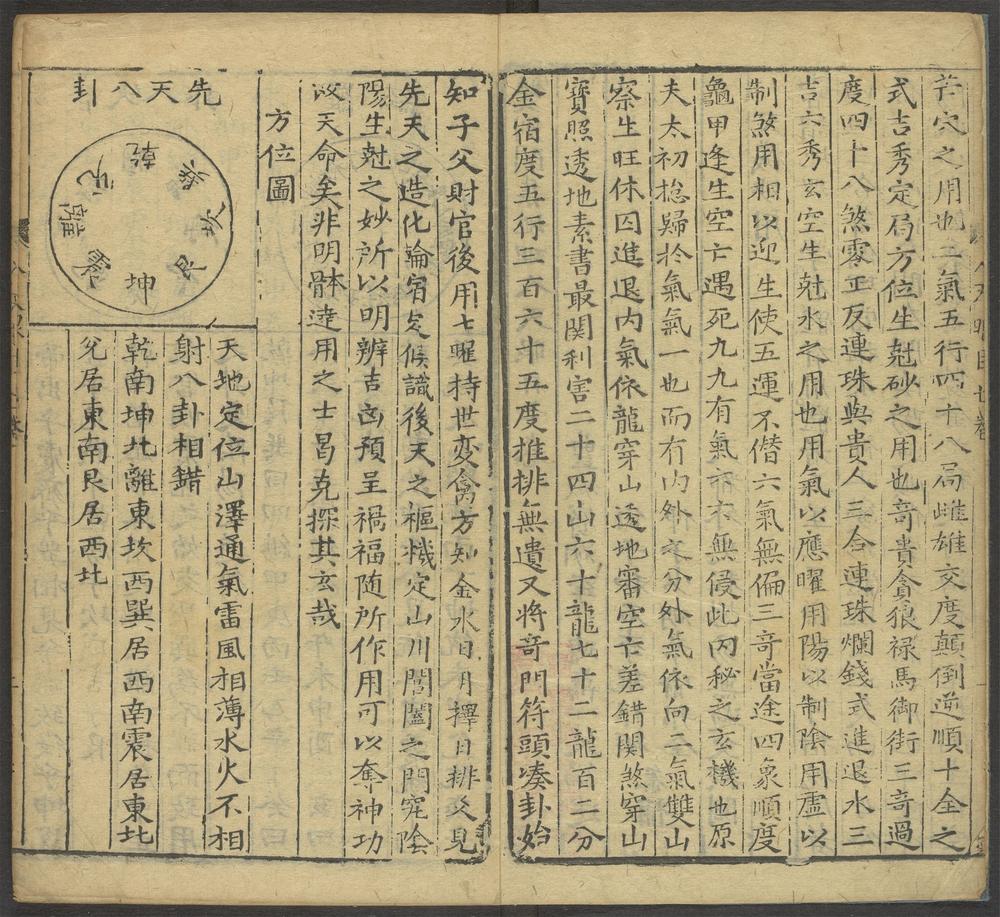 穴之用也二氣五行四十八局雌雄交度顛倒逆順十全之
式吉秀定局方位生尅砂之用也竒貴貪狼禄馬御街三竒過
度四十八煞零正反連珠與貴人三合連珠爛錢式進退水三
吉六秀玄空生尅水之用也用氣以應曜用陽以制陰用虛以
制煞用相以迎生使五運不僭六氣無偏三竒當途四象順度
龜甲逢生空亡遇死九九有氣不無侵此内秘之玄機也原
夫太初捴歸扵氣氣一也而有内外之分外氣依向二氣雙山
察生旺休囚進退内氣依龍穿山透地審空亡差錯関煞穿山
寳照透地素書最関利害二十四山六十龍七十二龍百二分
金宿度五行三百六十五度推排無遺又將竒門符頭凑卦始
知子父財官後用七曜持世変禽方知金水日月擇日排父見
先天之造化論宿定候識後天之樞機定山川閶闔之門究陰
陽生尅之妙所以明辨吉凶預呈禍福随所作用可以奪神功
改天命矣非明體逹用之士曷克探其玄哉
方位圖
先天八卦
乾
兌
離
震
巽
坎
艮
坤
天地定位山澤通氣雷風相薄水火不相
射八卦相錯
乾南坤北離東坎西巽居西南震居東北
兊居東南艮居西北